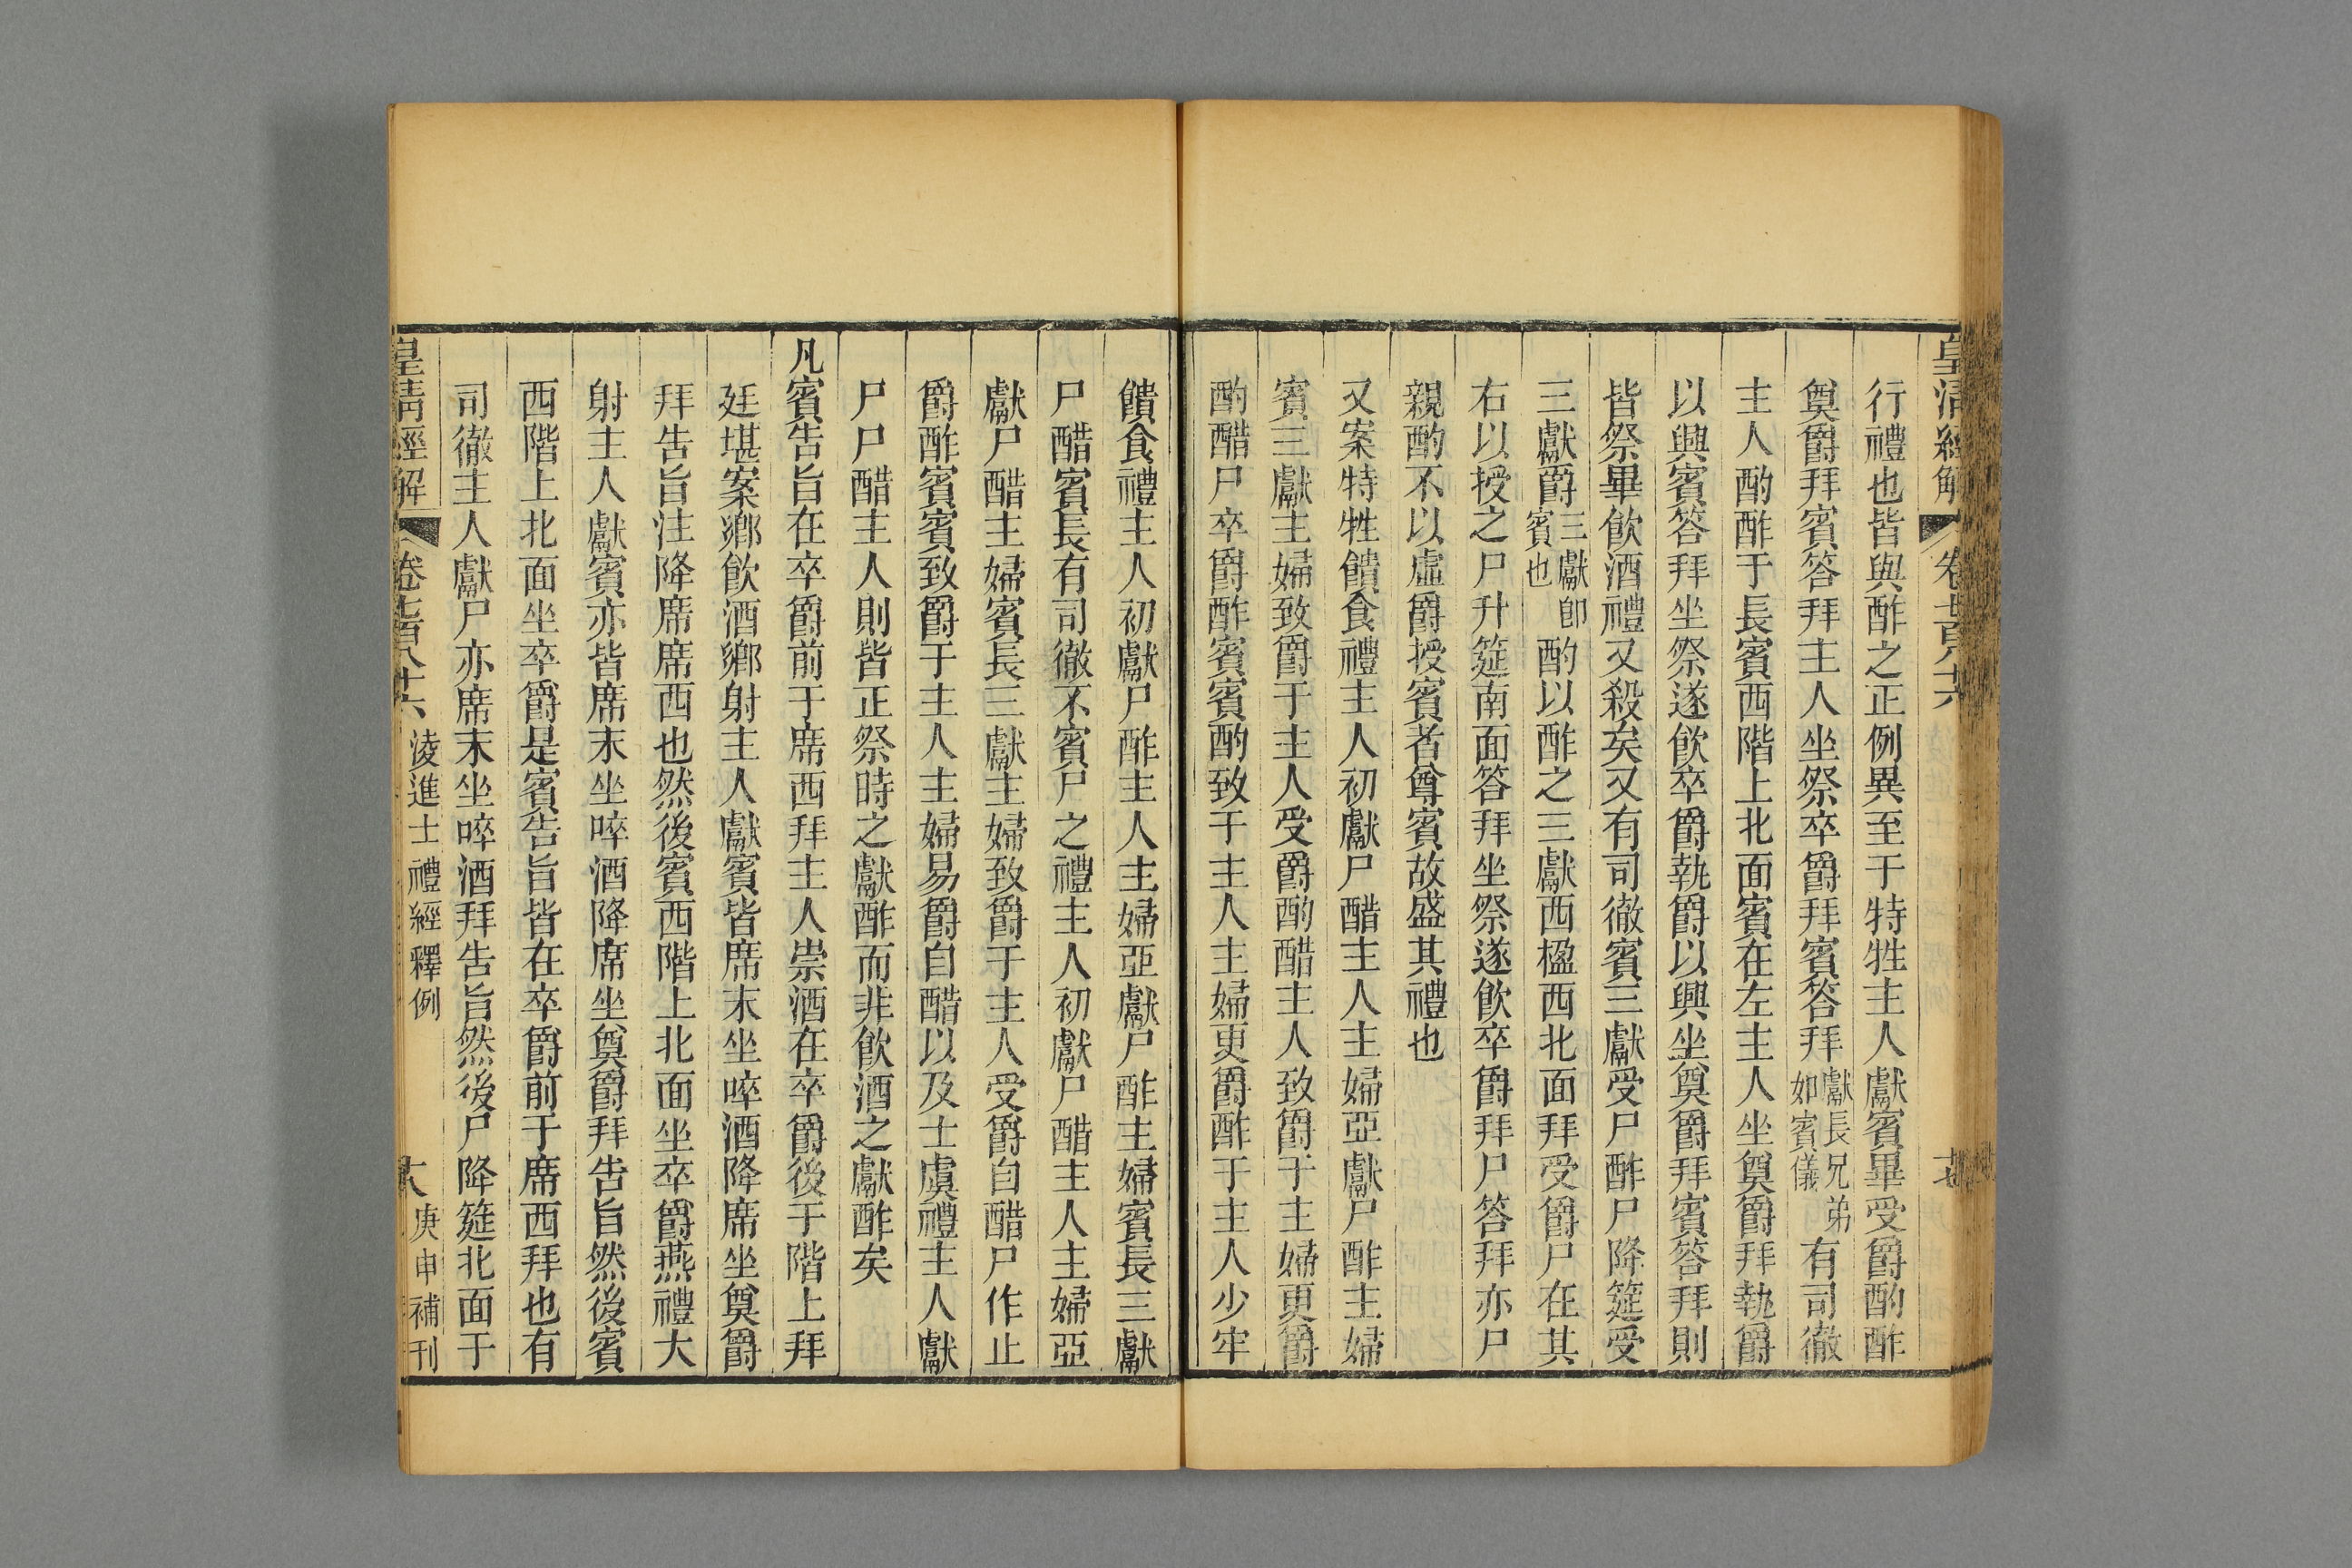 皇清經解 卷七百八十六 十七
行禮也皆與酢之正例異至于特牲主人獻賓畢受爵酌酢
奠爵拜賓答拜主人坐祭卒爵拜賓答拜獻長兄弟如賓儀有司徹
主人酌酢于長賓西階上北面賓在左主人坐奠爵拜執爵
以興賓答拜坐祭遂飲卒爵執爵以興坐奠爵拜賓答拜則
皆祭畢飲酒禮又殺矣又有司徹賓三獻受尸酢尸降筵受
三獻爵三獻卽賓也酌以酢之三獻西楹西北面拜受爵尸在其
右以授之尸升筵南面答拜坐祭遂飲卒爵拜尸答拜亦尸
親酌不以虛爵授賓者尊賓故盛其禮也
又案特牲饋食禮主人初獻尸醋主人主婦亞獻尸酢主婦
賓三獻主婦致爵于主人受爵酌醋主人致爵于主婦更爵
酌醋尸卒爵酢賓賓酌致于主人主婦更爵酢于主人少牢
饋食禮主人初獻尸酢主人主婦亞獻尸酢主婦賓長三獻
尸醋賓長有司徹不賓尸之禮主人初獻尸醋主人主婦亞
獻尸醋主婦賓長三獻主婦致爵于主人受爵自醋尸作止
爵酢賓賓致爵于主人主婦易爵自醋以及士虞禮主人獻
尸尸醋主人則皆正祭時之獻酢而非飲酒之獻酢矣
凡賓告旨在卒爵前于席西拜主人崇酒在卒爵後于階上拜
廷堪案鄉飲酒鄉射主人獻賓皆席末坐啐酒降席坐奠爵
拜告旨注降席席西也然後賓西階上北面坐卒爵燕禮大
射主人獻賓亦皆席末坐啐酒降席坐奠爵拜告旨然後賓
西階上北面坐卒爵是賓告旨皆在卒爵前于席西拜也有
司徹主人獻尸亦席末坐啐酒拜告旨然後尸降筵北面于
皇清經解 卷七百八十六 淩進士禮經釋例 大 庚申補刊